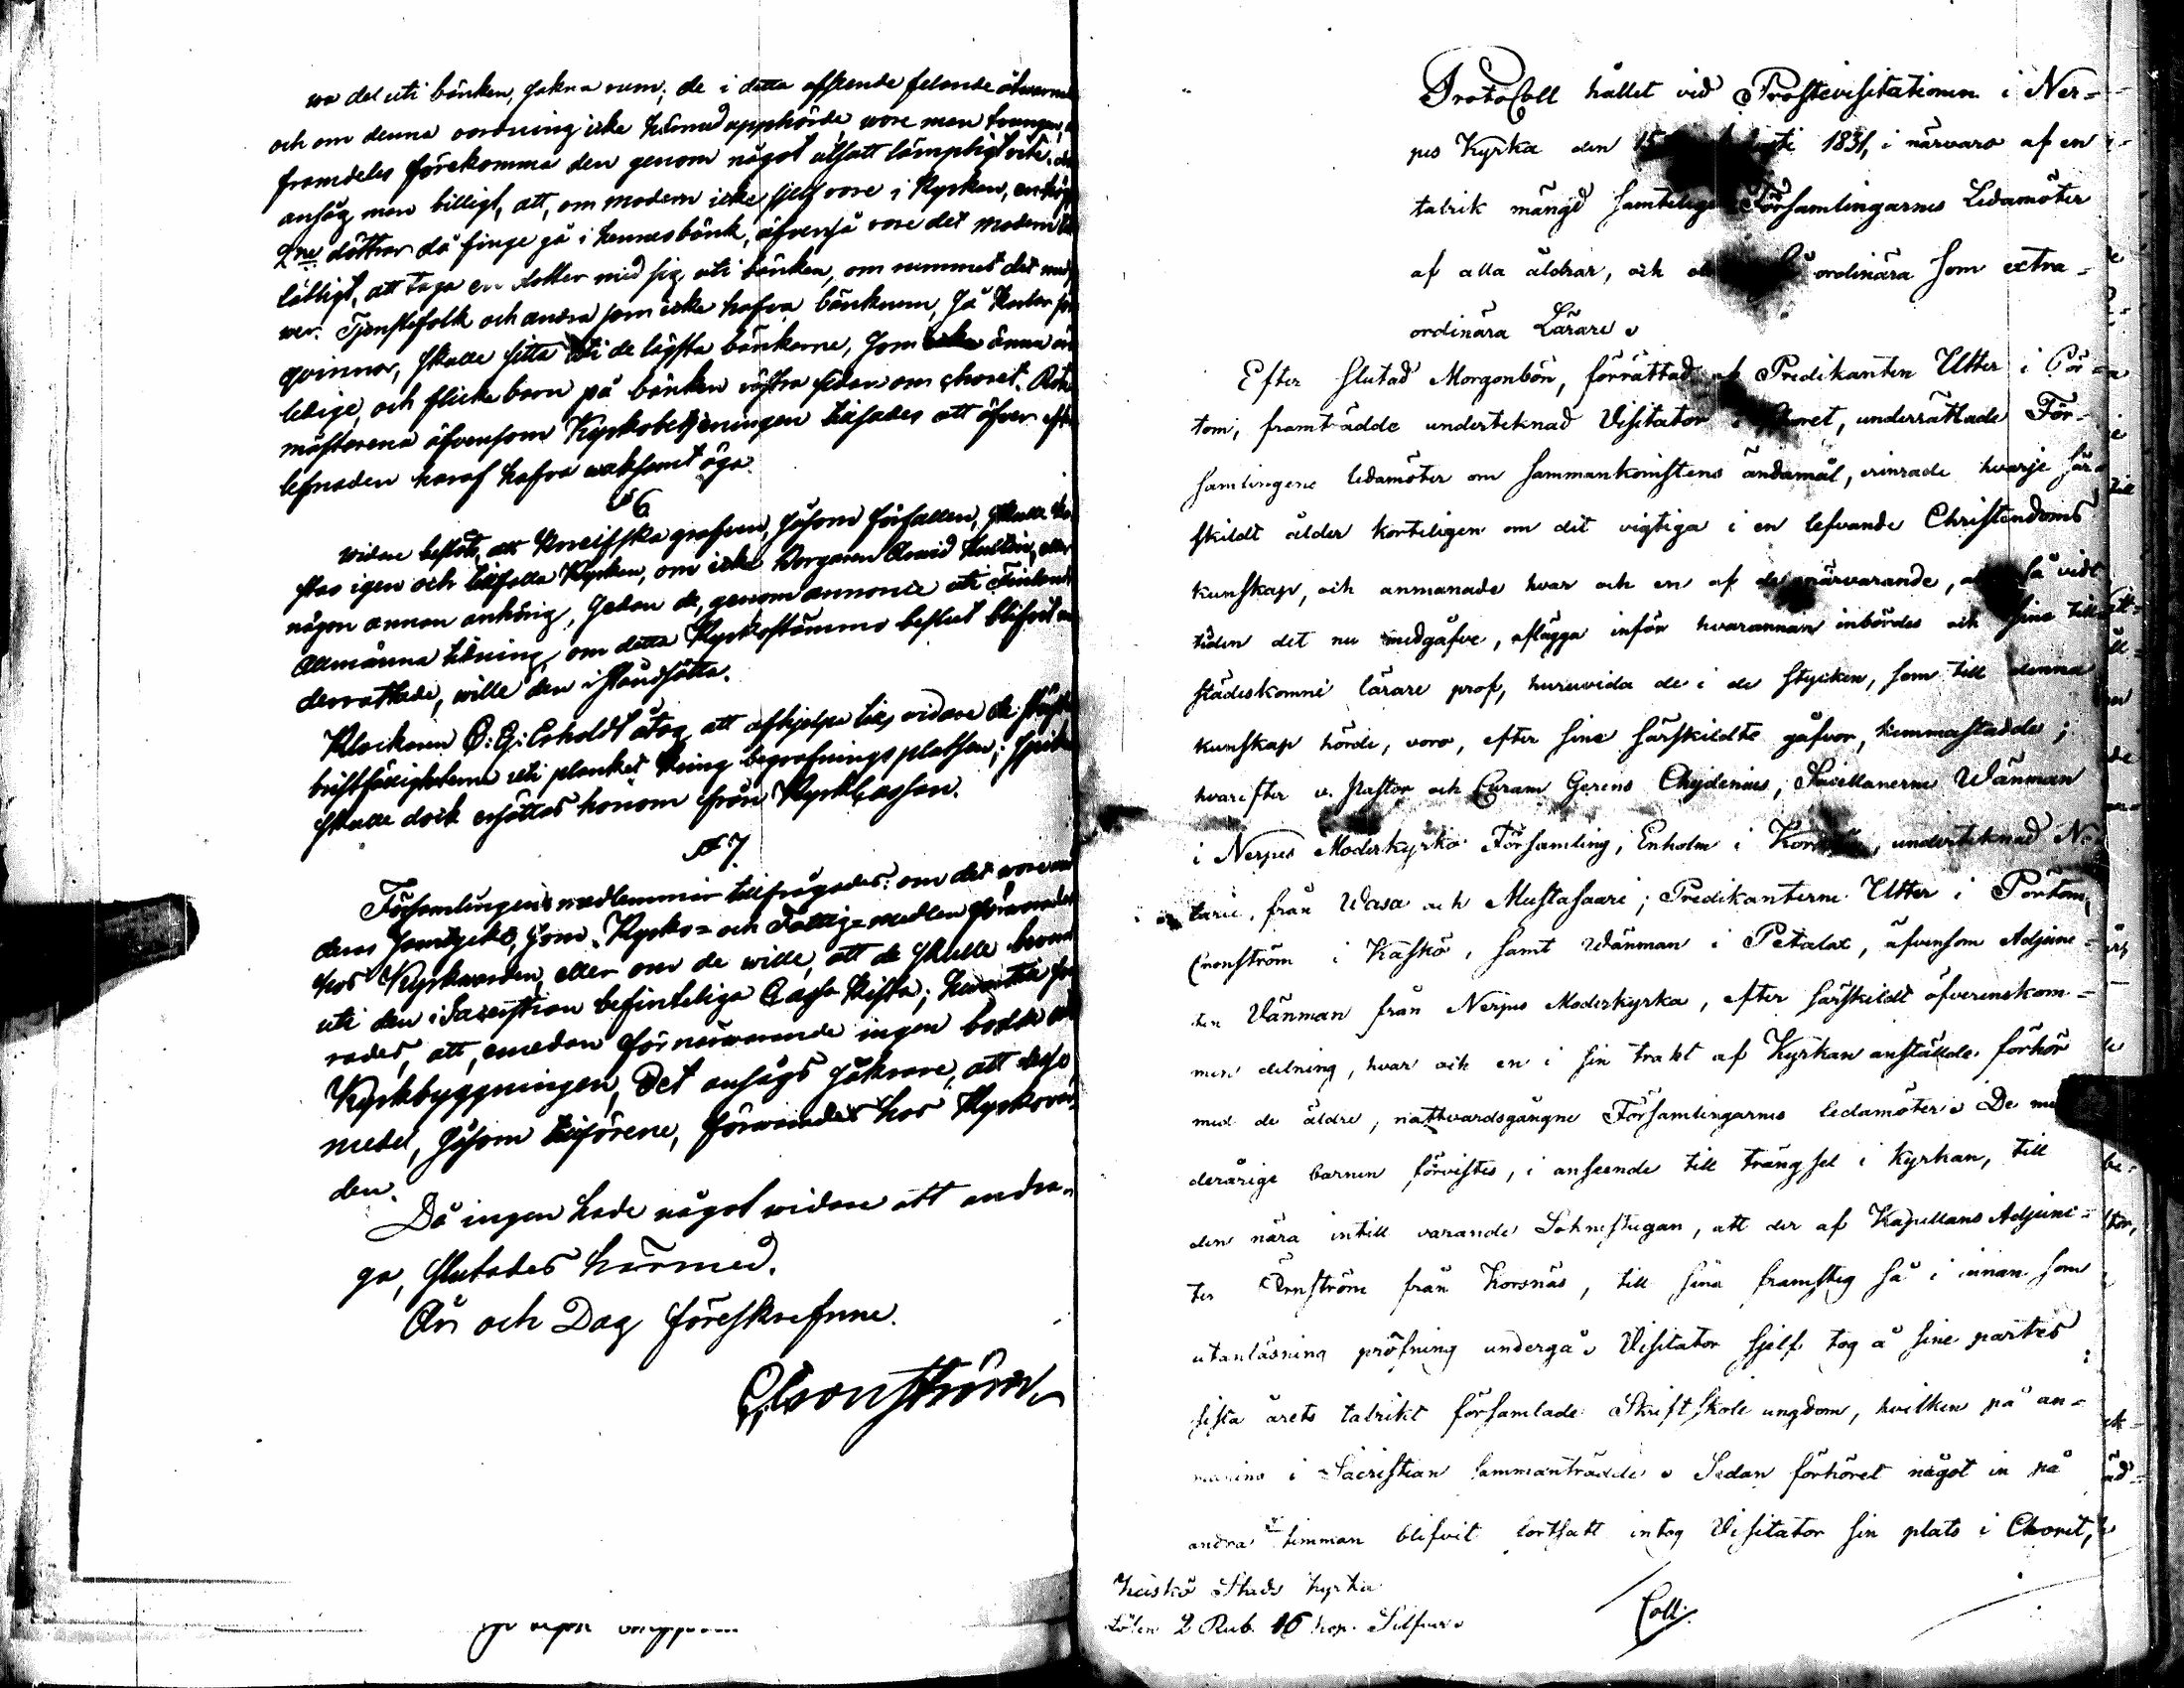 det uti bänken, sakna rum; de i detta afseende felande
och om denna oordning icke härmed upphörde, wore man twungen,
framdeles förekomma den genom något utsatt lämpligt wite.
ansåg man billigt, att, om modern icke sjelf wore i Kyrkan,
2ne döttrar då finge gå i hennes bänk, äfvenså vore det modern
låtligt, att taga en dotter med sig uti bänken, om rummet det
wer. Tjenstefolk och andra som icke hafva bänkrum, så Karlar som
qvinnor, skulle sitta uti de lägsta bänkarne, som ännu äro
lediga, och flickebarn på bänken västra sidan om choret. Rote
mästarena äfvensom Kyrkobetjeningen tillsades att öfver efter
lefnaden häraf hafva waksamt öga.
§ 6
Widare beslöts, att Kreisska grafven, såsom förfallen, skulle
stas igen och tillfalla Kyrkan, om icke Borgaren Arvid eller
någon annan anhörig, sedan de, genom annonce uti Finlands
Allmänna tidning, om detta Kyrkostämmo beslut blifvit un
derrättade, wille den i ståndsätta.
Klockaren åtog att afhjelpa tills vidare de
bristfälligheterna uti planket kring begrafningsplatsen; spik
skulle dock ersättas honom från KyrkCassan.
§ 7.
Församlingens medlemmar tillfrågades: om det wore med
deras samtycke, som Kyrko- och Fattig-medlen förwarades
hos Kyrkwärden, eller om de wille, att de skulle
uti den i Sacristian befinteliga Cassa Kista; hwartill swa
rades, att, emedan för närwarande ingen bodde
Kyrkbyggningen, det ansågs säkrare, att desse
medel, såsom tillförene, förwarades hos Kyrkovär-
den.
Då ingen hade något widare att andra-
ga, slutades härmed.
År och Dag föreskrefne.
Cronström
Protocoll hållet vid Prostevisitationen i Ner-
pes Kyrka den 15 1831, i närvaro af en
talrik mängd samtelige Församlingarnes Ledamöter
af alla åldrar, och ordinära som extra-
ordinära Lärare.
Efter slutad Morgonbön, förrättad af Predikanten Utter i Pör-
tom, framträdde underteknad Visitator i Choret, underrättade För-
samlingens ledamöter om sammankomstens ändamål, erinrade hvarje sär-
skildt ålder korteligen om det vigtiga i en lefvande Christendoms
kunskap, och anmanade hvar och en af de närvarande, så vidt
tiden det nu medgåfve, aflägga inför hvarannan inbördes och sina till
städeskomne lärare prof, huruvida de i de stycken, som till denna
kunskap hörde, voro, efter sine särskildte gåfvor, hemmastadde;
hvarefter v. Pastor och Curam Gerens Chydenius, Sacellanerne Wänman
i Nerpes Moderkyrko Församling, Enholm i underteknad No-
tarie, från Wasa och Mustasaari; Predikanterne Utter i Pörtom,
Cronström i Kaskö, samt Wänman i Petalax, äfvensom Adjunc-
ten Wänman från Nerpes Moderkyrka, efter särskildt öfverenskom-
men delning, hvar och en i sin trakt af Kyrkan anställde förhör
med de äldre, nattvardsgångne Församlingarnes ledamöter. De min
derårige barnen förvistes, i anseende till trängsel i Kyrkan, till
den nära intill varande Soknestugan, att der af Kapellans Adjunc-
ten från Korsnäs, till sina framsteg så i innan som
utanläsning pröfning undergå. Visitator sjelf tog å sine partes
sista årets talrikt församlade Skriftskole ungdom, hvilken på an-
maning i Sacristian sammanträdde. Sedan förhöret något in på
andra timman blifvit fortsatt intog Visitator sin plats i Choret,
Kaskö Stads kyrka
Lösen 2 Rub. 16 kop. Silfver.
Coll.